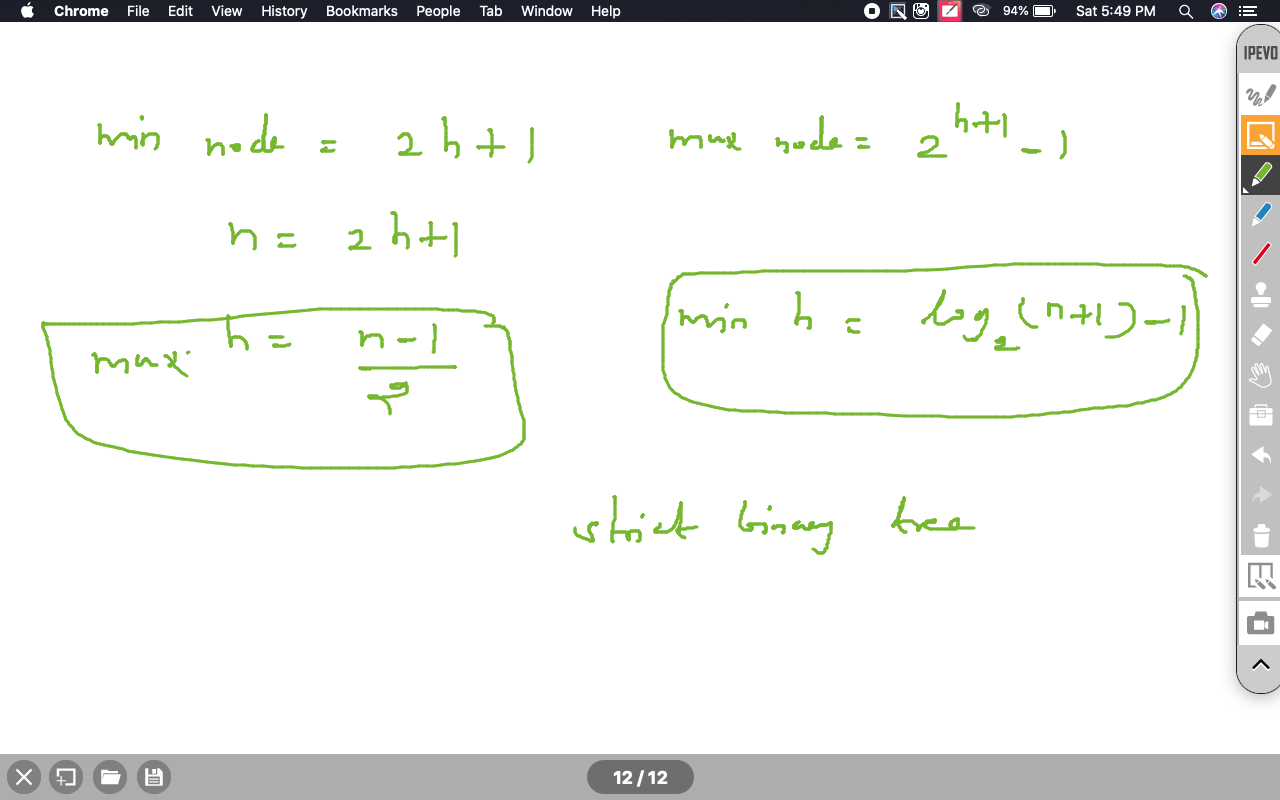 Chrome File Edit View History Bookmarks People Tab Window Help 94% Sat 5:49 PM
IPEVO
min node = 2h+1
max node = 2^{h+1} - 1
n = 2h+1
max h = \frac{n-1}{2}
min h = log_2(n+1) - 1
strict binary tree
12 / 12